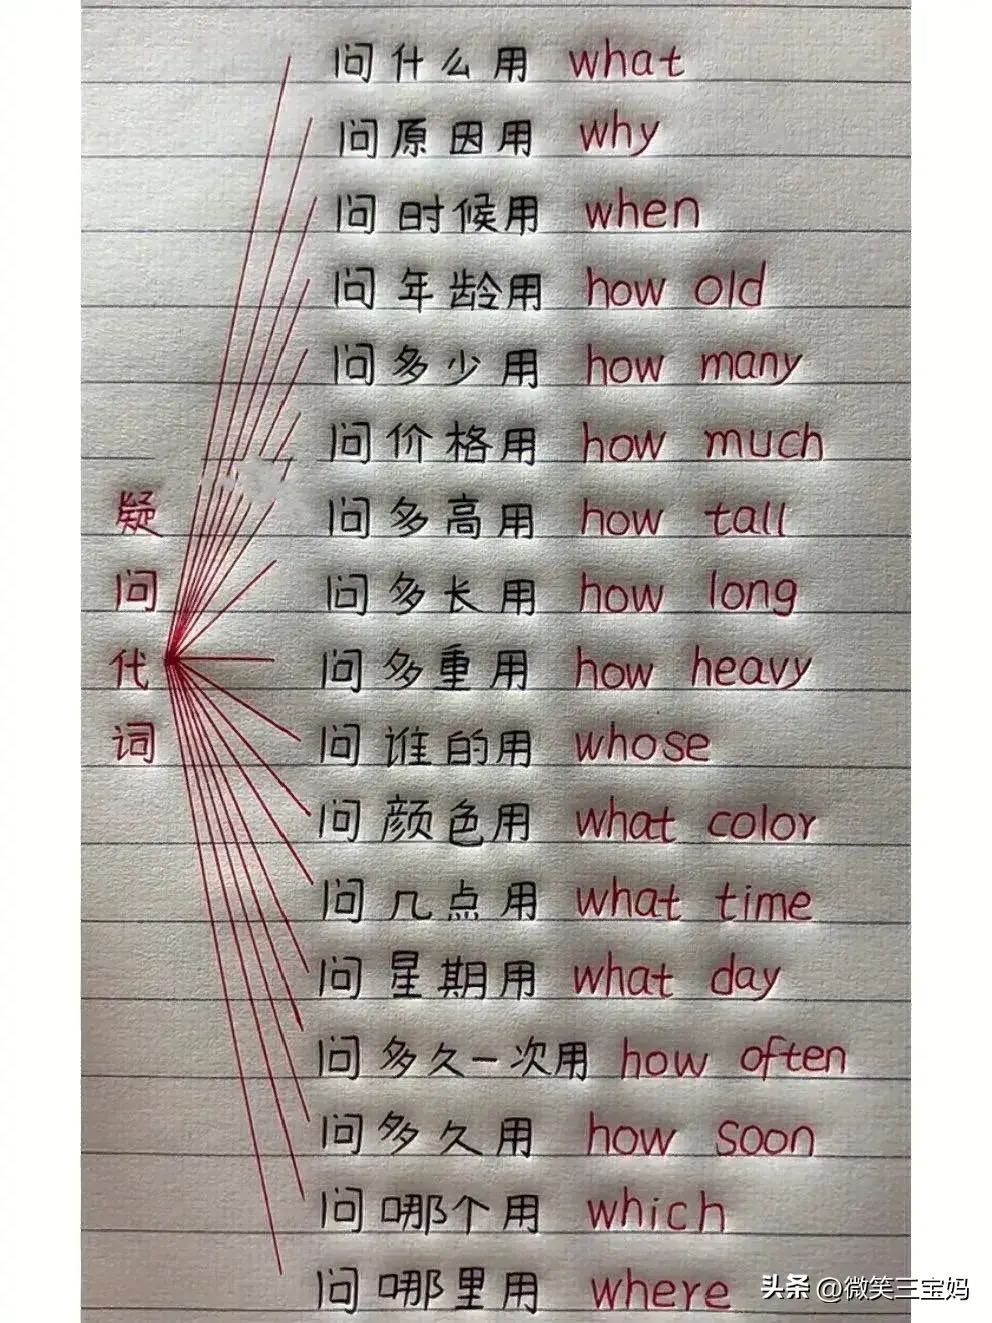 问什么用 what
问原因用 why
问时候用 when
问年龄用 how old
问多少用 how many
问价格用 how much
问多高用 how tall
问多长用 how long
问多重用 how heavy
问谁的用 whose
问颜色用 what color
问几点用 what time
问星期用 what day
问多久一次用 how often
问多久用 how soon
问哪个用 which
问哪里用 where
疑问代词
头条 @微笑三宝妈